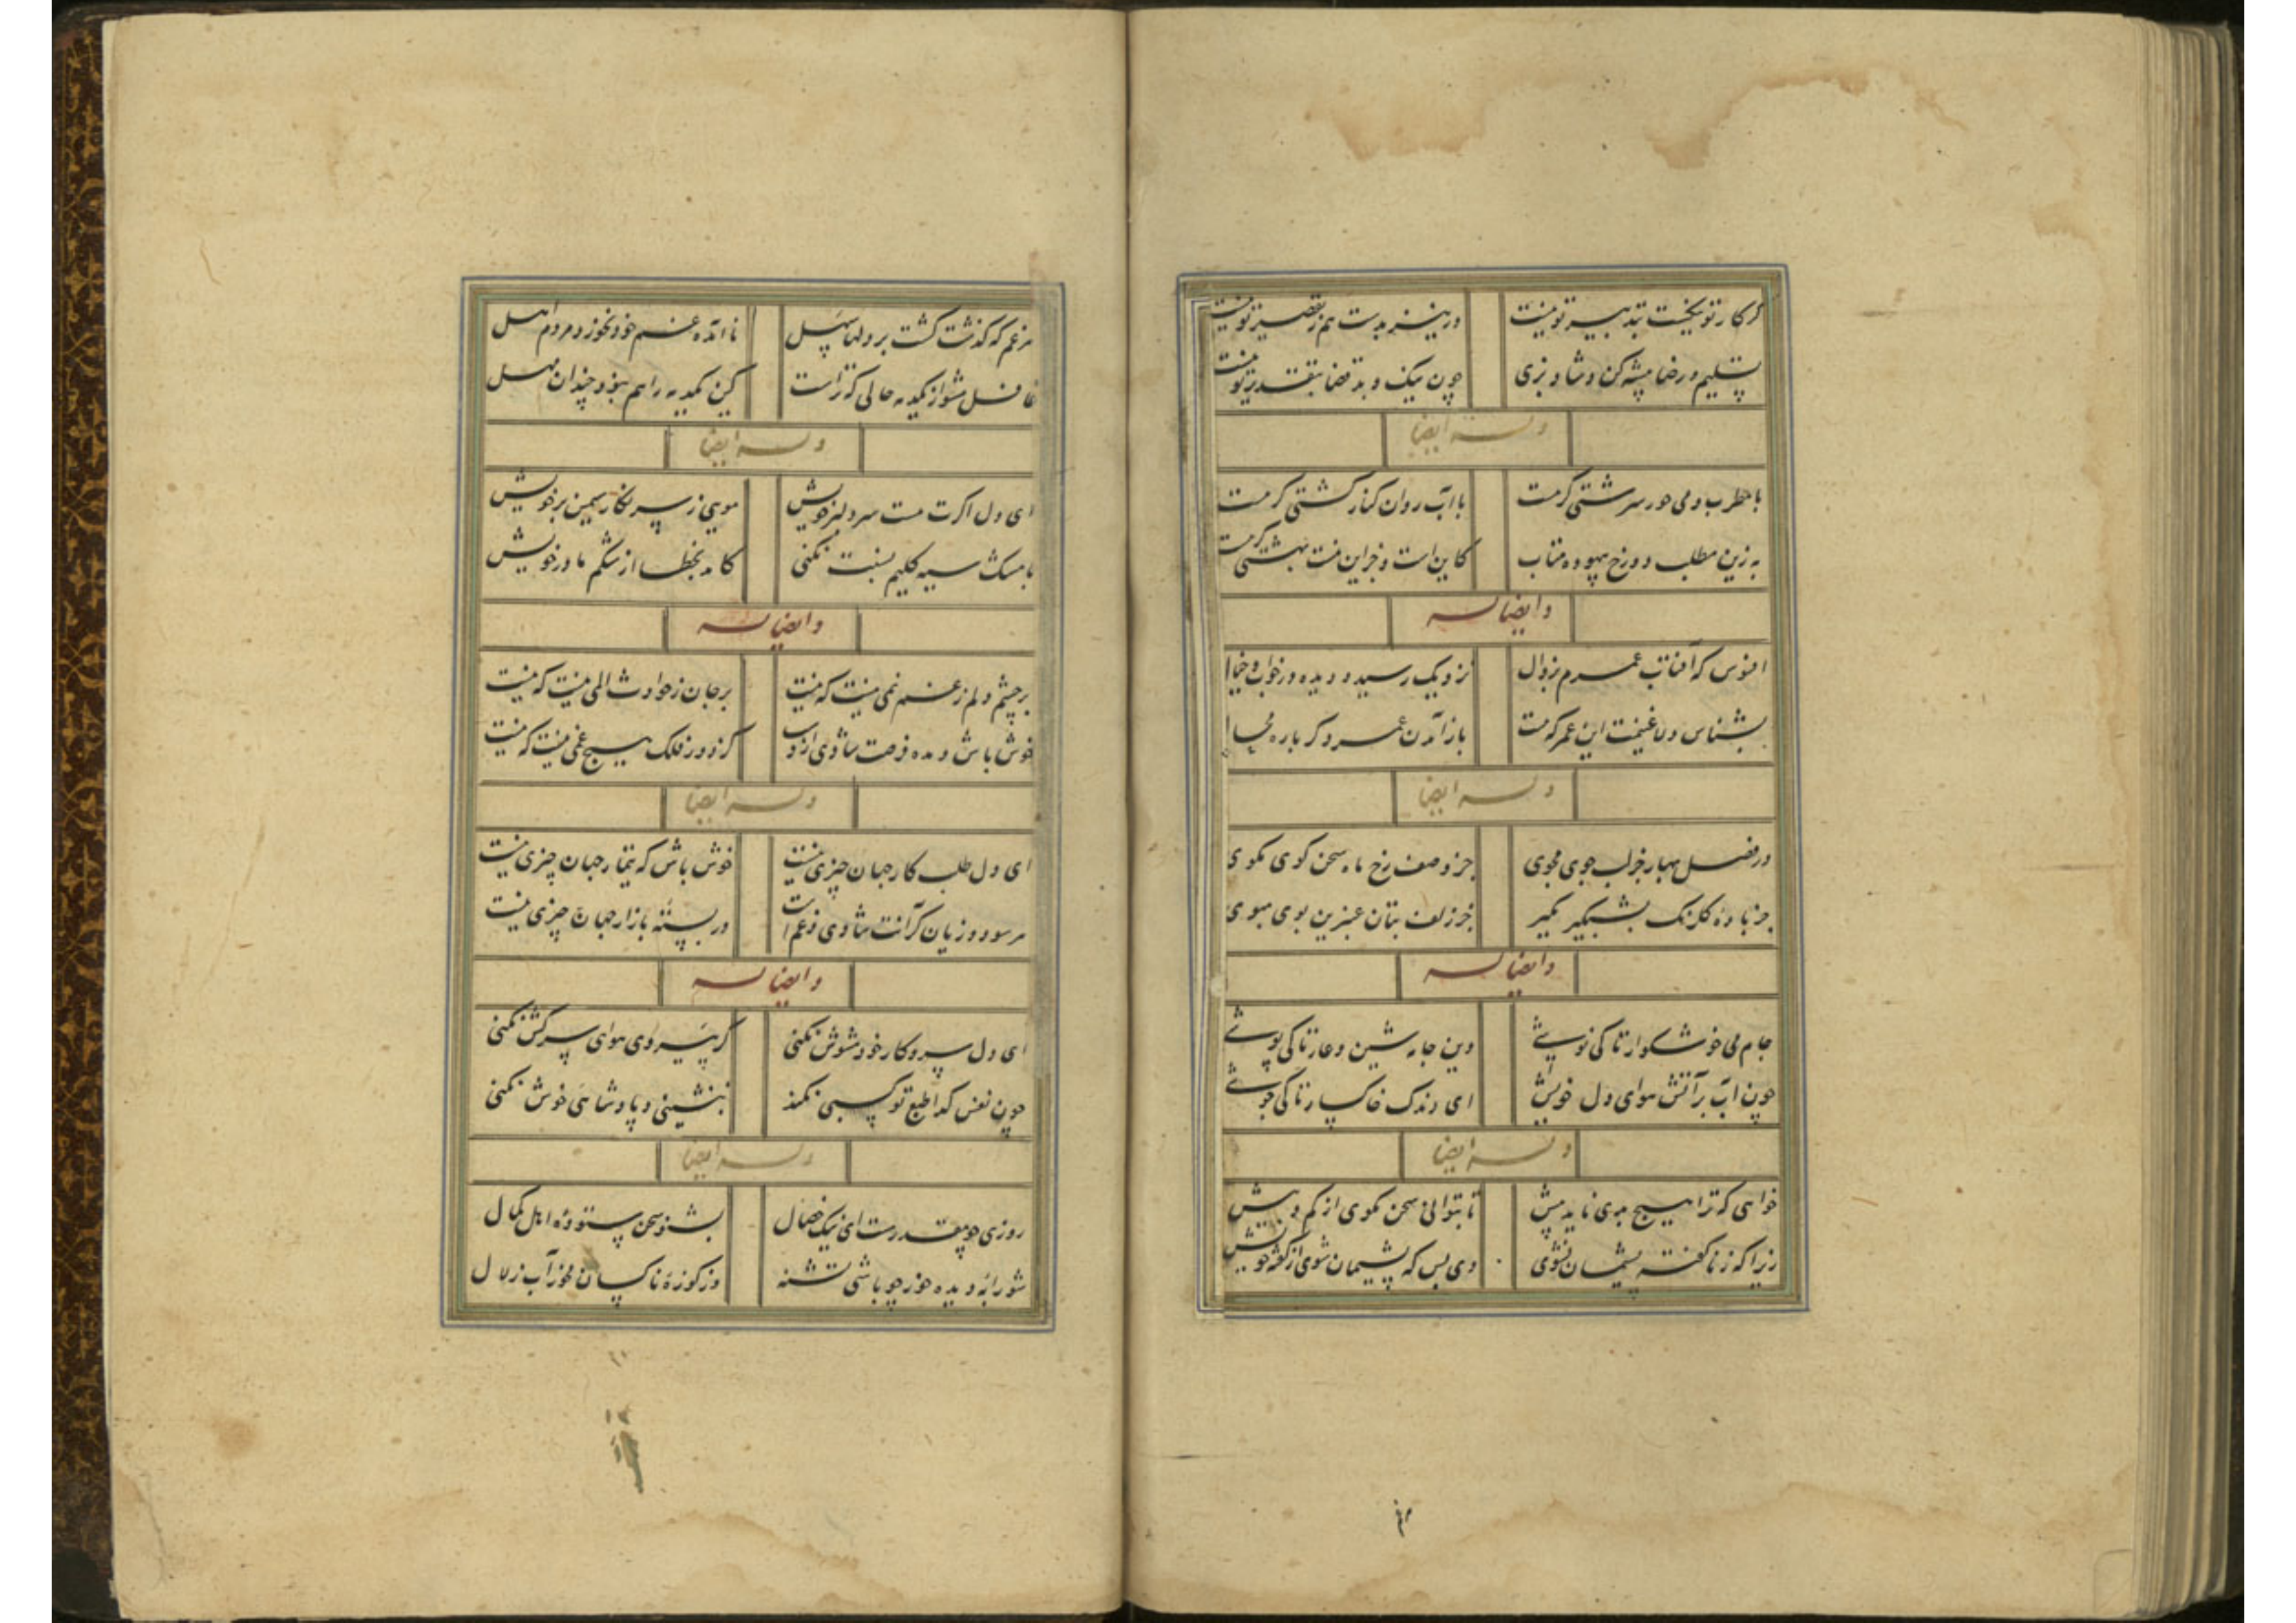 گر کار تو نیکست بتدبیر تو نیست ور نیز بدست هم ز تقصیر تو نیست
تسلیم و رضا پیشه کن و شاد بزی چون نیک و بد قضا بتقدیر تو نیست
وله ایضا
با مطرب و می حور سرشتی گر هست با آب روان کنار کشتی گر هست
به زین مطلب دوزخ بیهوده متاب کاین است و جز این نیست بهشتی گر هست
و ایضا له
افسوس که آفتاب عمرم بزوال نزدیک رسید و دیده در خواب خیال
بشناس دلا غنیمت این عمر که هست باز آمدن عمر دگر باره محال
وله ایضا
در فصل بهار جز لب جوی مجوی جز وصف رخ ماه سخن کوی مکوی
جز باده گلرنگ بشبگیر مگیر جز زلف بتان عنبرین بوی مبوی
و ایضا له
جام می خوشکوار تا کی نوشی وین جامه شین و عار تا کی پوشی
چون آب بر آتش هوای دل خویش ای رندک خاکسار تا کی جوشی
وله ایضا
خواهی که ترا هیچ بدی ناید پیش تا بتوانی سخن مکوی از کم و بیش
زیرا که ز ناگفته پشیمان نشوی وی بس که پشیمان شوی از گفته خویش
هر غم که گذشت گشت بر دلها سهل نا آمده غم خود نخورد مردم اهل
غافل مشو از یکدمه حالی که تراست کین یکدمه را هم نبود چندان مهل
وله ایضا
ای دل اگرت هست سر دلبر خویش مویی ز سر نگار سیمین بر خویش
با مشک سیه گلیم نسبت نکنی کامد بخطا از شکم مادر خویش
و ایضا له
بر چشم دلم ز غم نمی نیست که نیست بر جان ز حوادث المی نیست که نیست
خوش باش و مده فرصت شادی از دست کز دور فلک هیچ غمی نیست که نیست
وله ایضا
ای دل طلب کار جهان چیزی نیست خوش باش که تیمار جهان چیزی نیست
هر سود و زیان کز آنت شادی و غم است در بسته بازار جهان چیزی نیست
و ایضا له
ای دل سر و کار خود مشوش نکنی گر پیروی هوای سرکش نکنی
چون نفس گدا طبع تو کسبی نکند ننشینی و پادشاهی خوش نکنی
وله ایضا
روزی چو مقدرست ای نیک خصال بشنو سخن ستوده اهل کمال
شورابه دیده خور چو باشی تشنه وز کوزه ناکسان مخور آب زلال